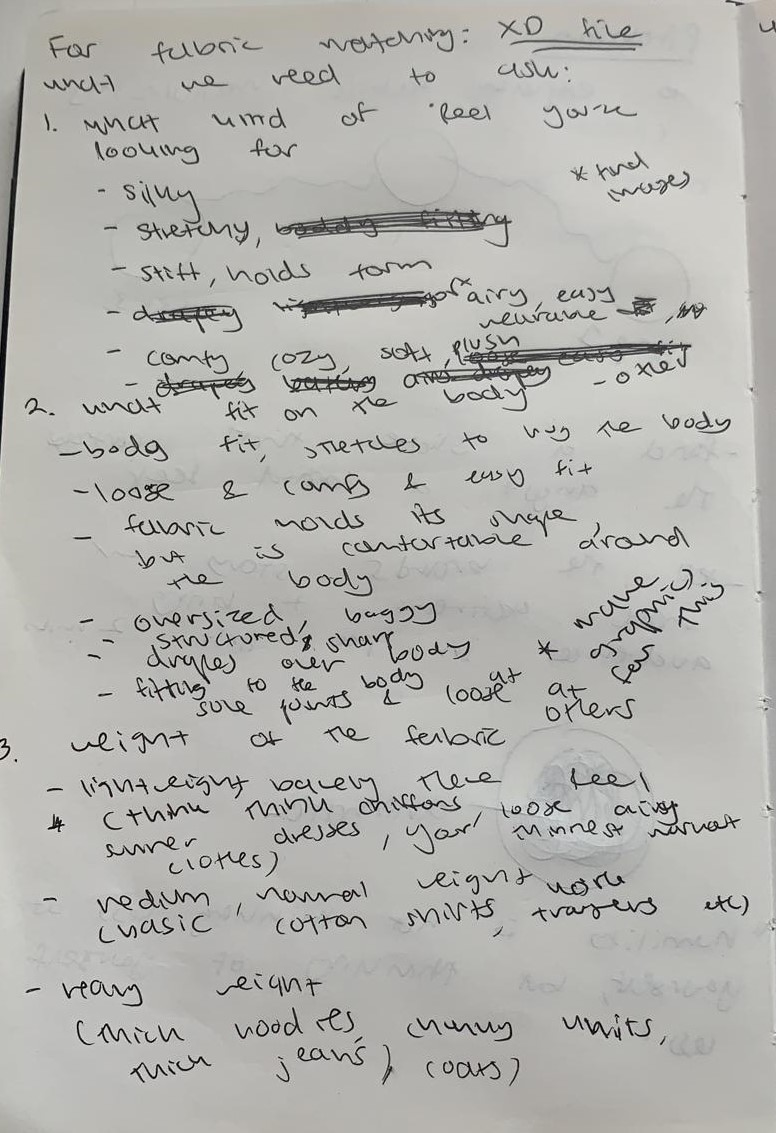 For fabric matching: XD file
what we need to ask:
1. what kind of feel you're
looking for
* find
images
- silky
- stretchy,
- stiff, holds form
- airy, easy
wearable
- comfy, cozy, soft, plush
- other
2. what fit on the body
- body fit, stretches to hug the body
- loose & comfy & easy fit
- fabric molds its shape,
but is comfortable around
the body
- oversized, baggy
- structured, sharp
- drapes over body
* make
graphics
for this
- fitting to the body at
some points & loose at
others
3. weight of the fabric
- lightweight barely there feel
(think think chiffons, loose airy
summer dresses, your thinnest
clothes)
- medium, normal weight
(basic cotton shirts, trousers etc)
- heavy weight
(thick hoodies, chunky knits,
thick jeans) coats)